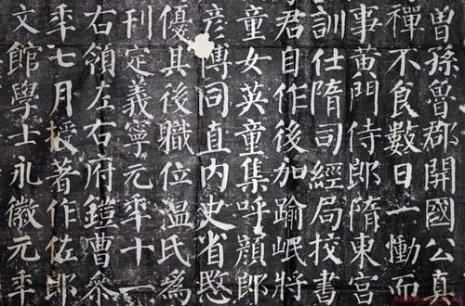 曾孫魯郡開國公真
禪不食數日一慟而
事黃門侍郎隋東宮
訓仕隋司經局挍書
君自作後加踰岷將
童女英童集呼顏郎
彦博同直內史省愍
優其後職位溫氏為
刊定義寧元年十一
右領左右府鎧曹參
年七月授著作佐郎
文館學士永徽元年